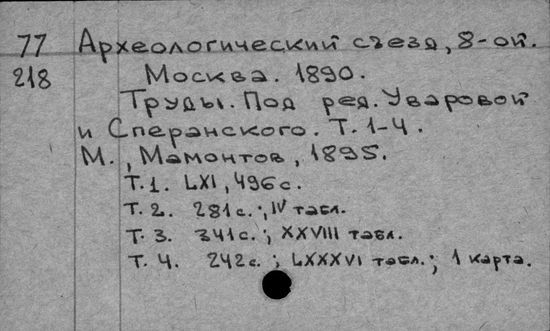 77 Археологический съезд, 8-ой.
218 Москва. 1890.
Труды. Под ред. Уваровой
и Сперанского. Т. 1-4.
М., Мамонтов, 1895.
Т. 1. LXI, 496 с.
Т. 2. 281 с.; IV табл.
Т. 3. 341 с.; XXVIII табл.
Т. 4. 242 с.; LXXXVI табл.; 1 карта.